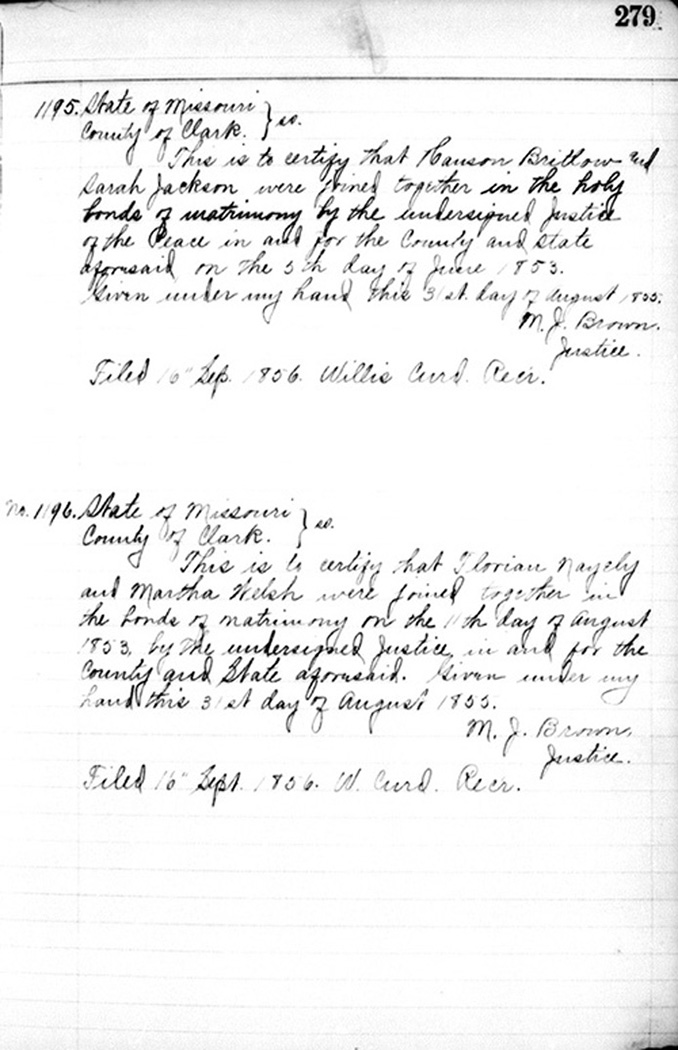 279
1195. State of Missouri } ss.
County of Clark.
This is to certify that Hanson Brittow and
Sarah Jackson were joined together in the holy
bonds of matrimony by the undersigned Justice
of the Peace in and for the County and State
aforesaid on the 5th day of June 1853.
Given under my hand this 31st. day of August 1855.
M. J. Brown.
Justice.
Filed 16" Sep. 1856. Willis Curd. Recr.
No. 1196. State of Missouri } ss.
County of Clark.
This is to certify that Florian Nagely
and Martha Welsh were joined together in
the bonds of matrimony on the 11th day of August
1853, by the undersigned Justice, in and for the
County and State aforesaid. Given under my
hand this 31st day of August 1855.
M. J. Brown,
Justice.
Filed 16" Sept. 1856. W. Curd. Recr.